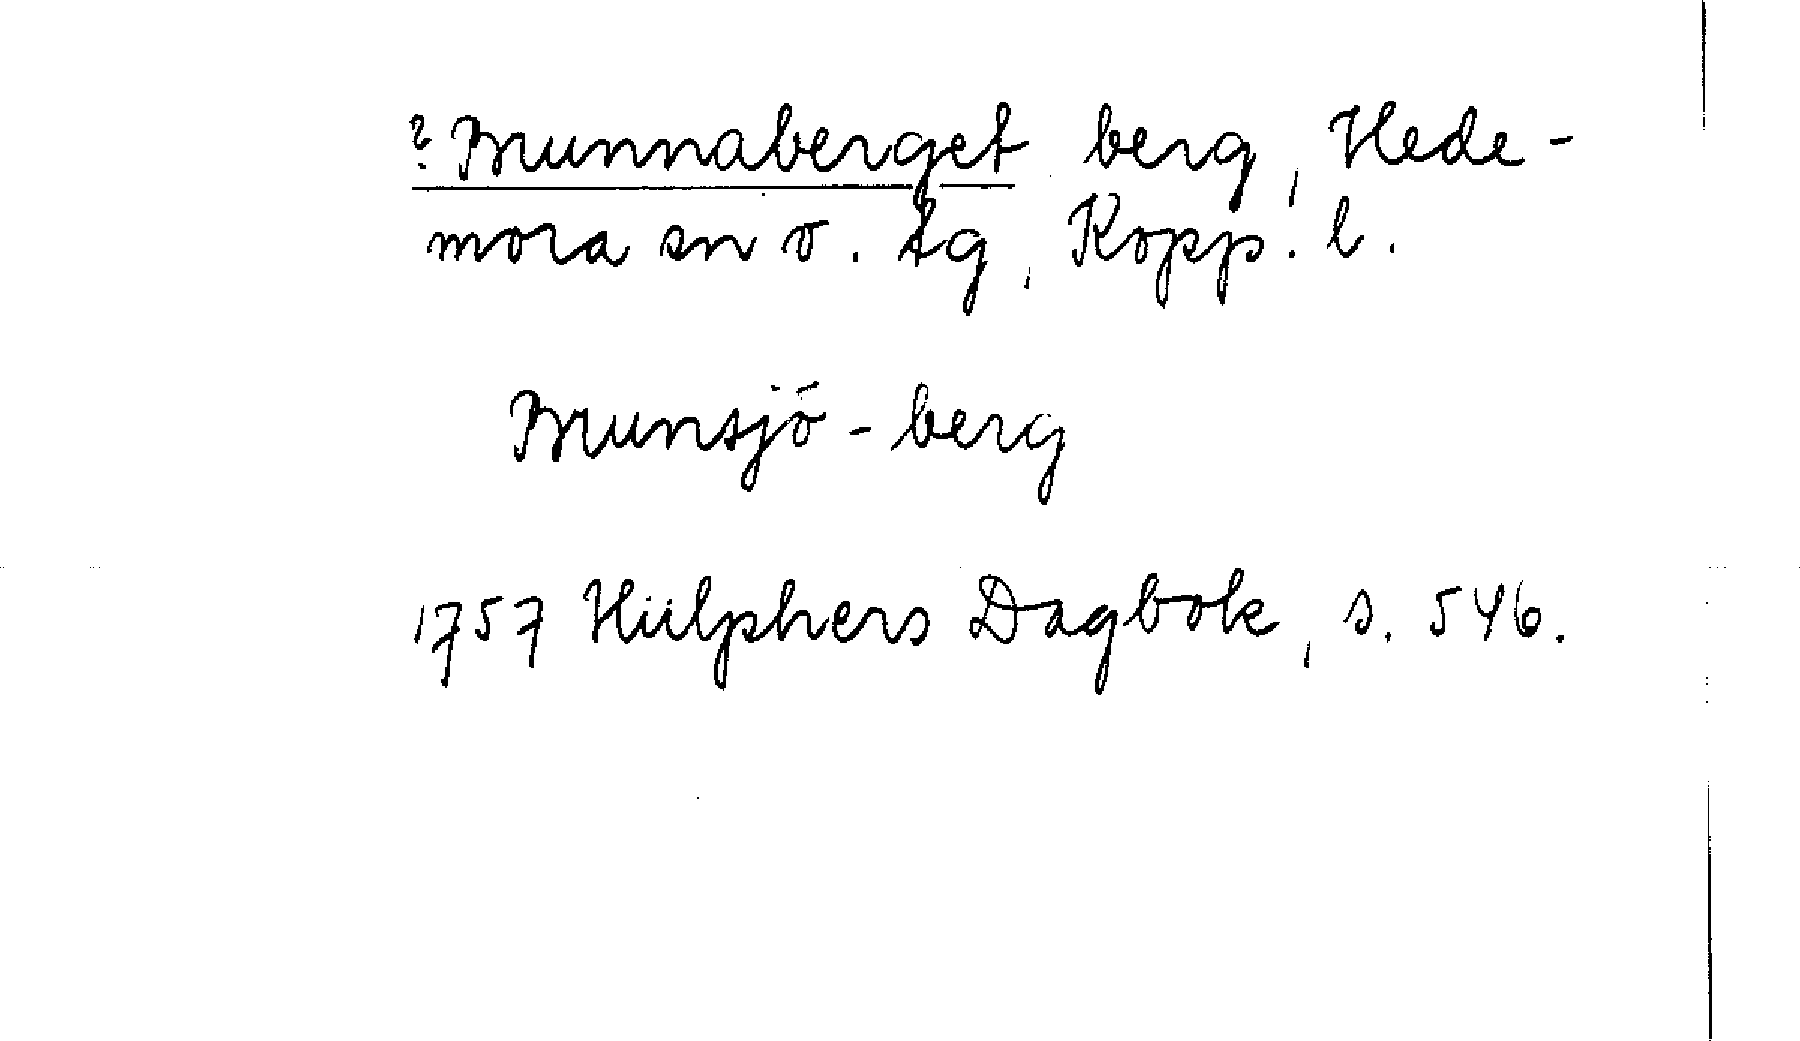 ? Brunnaberget berg, Hede-
mora sn o. tg, Kopp. l.
Brunsjö-berg
1757 Hülphers Dagbok, s. 546.